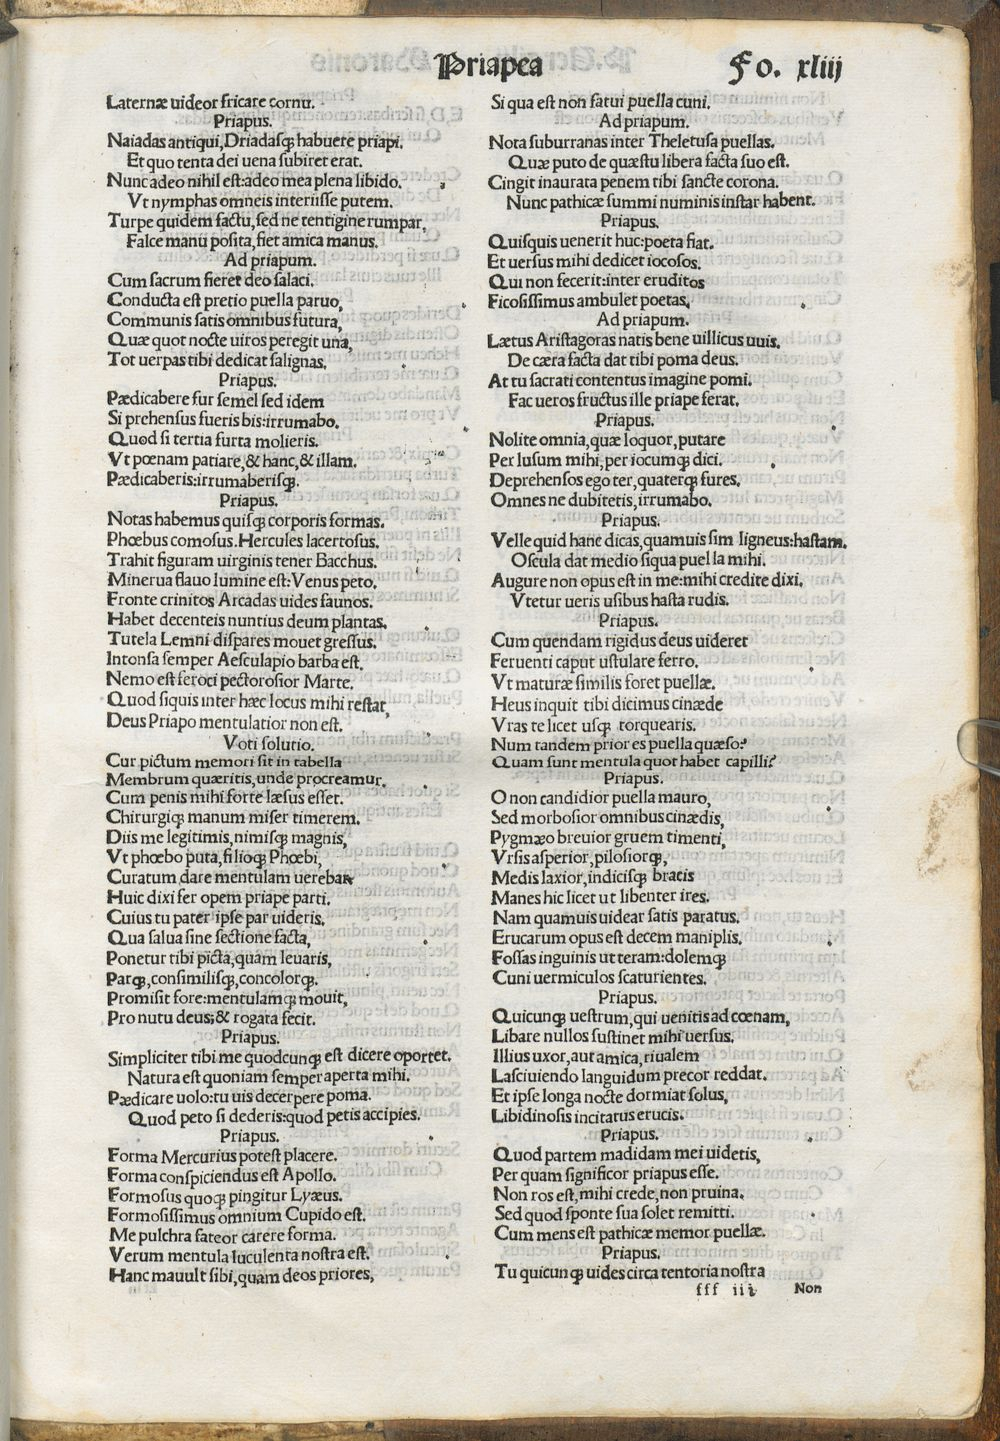 Priapea
Fo. xliij
Laternæ uideor fricare cornu.
Priapus.
Naiadas antiqui,Driadasqꝫ habuere priapi.
Et quo tenta dei uena subiret erat.
Nunc adeo nihil est:adeo mea plena libido.
Vt nymphas omneis interiisse putem.
Turpe quidem factu,sed ne tentigine rumpar,
Falce manu posita,fiet amica manus.
Ad priapum.
Cum sacrum fieret deo salaci.
Conducta est pretio puella paruo,
Communis satis omnibus futura,
Quæ quot nocte uiros peregit una,
Tot uerpas tibi dedicat salignas.
Priapus.
Pædicabere fur semel sed idem
Si prehensus fueris bis:irrumabo.
Quod si tertia furta molieris.
Vt pœnam patiare,& hanc,& illam.
Pædicaberis:irrumaberisqꝫ.
Priapus.
Notas habemus quisqꝫ corporis formas.
Phœbus comosus.Hercules lacertosus.
Trahit figuram uirginis tener Bacchus.
Minerua flauo lumine est:Venus peto.
Fronte crinitos Arcadas uides faunos.
Habet decenteis nuntius deum plantas.
Tutela Lemni dispares mouet gressus.
Intonsa semper Aesculapio barba est.
Nemo est feroci pectorosior Marte.
Quod siquis inter hæc locus mihi restat,
Deus Priapo mentulatior non est.
Voti solutio.
Cur pictum memori sit in tabella
Membrum quæritis,unde procreamur.
Cum penis mihi forte læsus esset.
Chirurgiqꝫ manum miser timerem.
Diis me legitimis,nimisqꝫ magnis,
Vt phœbo puta,filioqꝫ Phœbi,
Curatum dare mentulam uerebar
Huic dixi fer opem priape parti.
Cuius tu pater ipse par uideris.
Qua salua sine sectione facta,
Ponetur tibi picta,quam leuaris,
Parqꝫ,consimilisqꝫ,concolorqꝫ.
Promisit fore:mentulamqꝫ mouit,
Pro nutu deus;& rogata fecit.
Priapus.
Simpliciter tibi me quodcunqꝫ est dicere oportet.
Natura est quoniam semper aperta mihi.
Pædicare uolo:tu uis decerpere poma.
Quod peto si dederis:quod petis accipies.
Priapus.
Forma Mercurius potest placere.
Forma conspiciendus est Apollo.
Formosus quoqꝫ pingitur Lyæus.
Formosissimus omnium Cupido est.
Me pulchra fateor carere forma.
Verum mentula luculenta nostra est.
Hanc mauult sibi,quam deos priores,
Si qua est non fatui puella cuni.
Ad priapum.
Nota suburranas inter Theletusa puellas.
Quæ puto de quæstu libera facta suo est.
Cingit inaurata penem tibi sancte corona.
Nunc pathicæ summi numinis instar habent.
Priapus.
Quisquis uenerit huc:poeta fiat.
Et uersus mihi dedicet iocosos.
Qui non fecerit:inter eruditos
Ficosissimus ambulet poetas.
Ad priapum.
Lætus Aristagoras natis bene uillicus uuis.
De cæra facta dat tibi poma deus.
At tu sacrati contentus imagine pomi.
Fac ueros fructus ille priape ferat.
Priapus.
Nolite omnia,quæ loquor,putare
Per lusum mihi,per iocumqꝫ dici.
Deprehensos ego ter,quaterqꝫ fures.
Omnes ne dubitetis,irrumabo.
Priapus.
Velle quid hanc dicas,quamuis sim ligneus:hastam.
Oscula dat medio siqua puella mihi.
Augure non opus est in me:mihi credite dixi.
Vtetur ueris usibus hasta rudis.
Priapus.
Cum quendam rigidus deus uideret
Feruenti caput ustulare ferro.
Vt maturæ similis foret puellæ.
Heus inquit tibi dicimus cinæde
Vras te licet usqꝫ torquearis.
Num tandem prior es puella quæso?
Quam sunt mentula quot habet capilli?
Priapus.
O non candidior puella mauro,
Sed morbosior omnibus cinædis,
Pygmæo breuior gruem timenti,
Vrsis asperior,pilosiorqꝫ,
Medis laxior,indicisqꝫ bracis
Manes hic licet ut libenter ires.
Nam quamuis uidear satis paratus.
Erucarum opus est decem maniplis.
Fossas inguinis ut teram:dolemqꝫ
Cuni uermiculos scaturientes.
Priapus.
Quicunqꝫ uestrum,qui uenitis ad cœnam,
Libare nullos sustinet mihi uersus.
Illius uxor,aut amica,riualem
Lasciuiendo languidum precor reddat.
Et ipse longa nocte dormiat solus,
Libidinosis incitatus erucis.
Priapus.
Quod partem madidam mei uidetis,
Per quam significor priapus esse.
Non ros est,mihi crede,non pruina.
Sed quod sponte sua solet remitti.
Cum mens est pathicæ memor puellæ.
Priapus.
Tu quicunqꝫ uides circa tentoria nostra
fff iii
Non